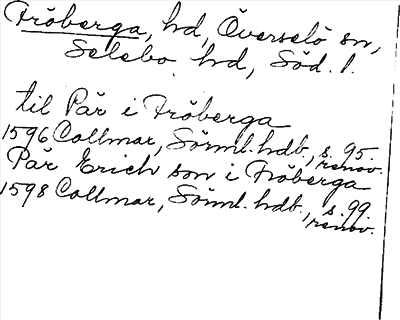 Fröberga, hd, Överselö sn,
Selebo hd, Söd. l.
til Pär i Fröberga
1596 Collmar, Sörml. hdb., s. 95.
renov.
Pär Erich son i Fröberga
1598 Collmar, Sörml. hdb., s. 99.
renov.